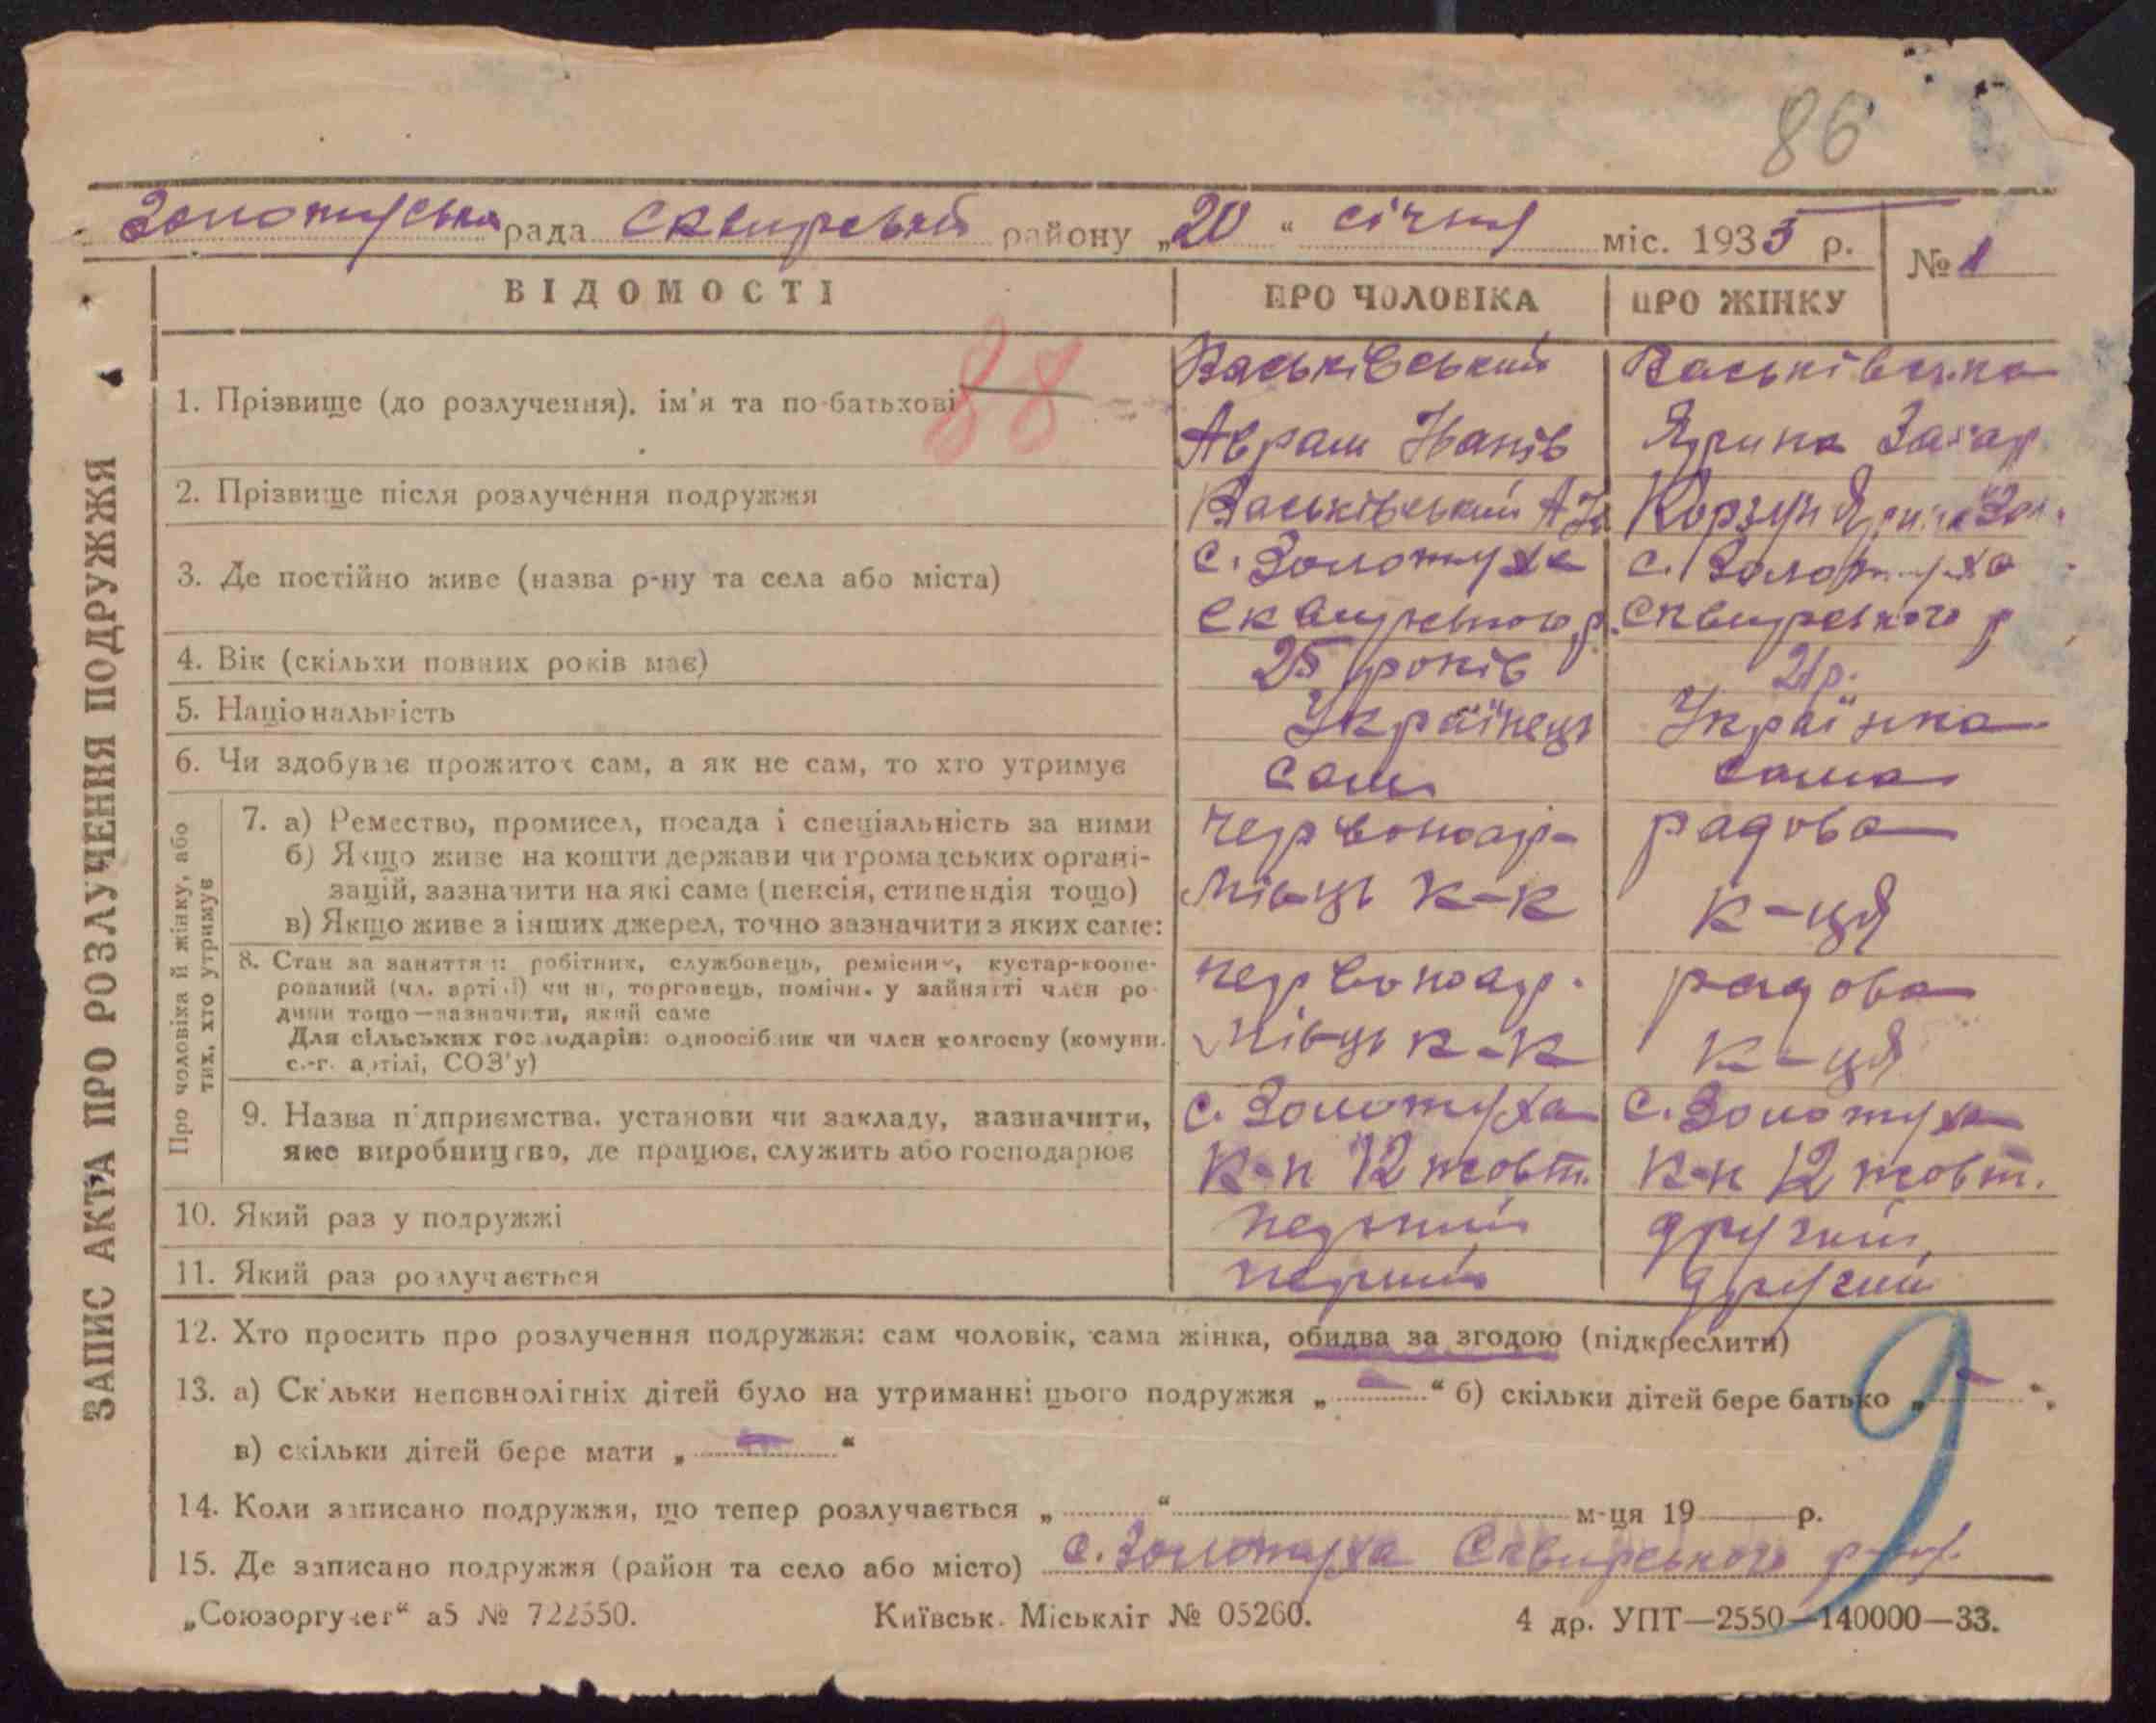 86
Золотуська рада Сквирський району „20“ січня міс. 1935 р.
№ 1
ЗАПИС АКТА ПРО РОЗЛУЧЕННЯ ПОДРУЖЖЯ
ВІДОМОСТІ
ПРО ЧОЛОВІКА
ПРО ЖІНКУ
88
1. Прізвище (до розлучення), ім'я та по-батькові
Васьківський
Аврам Іванів
Васьківська
Ярина Захар.
2. Прізвище після розлучення подружжя
Васьківський А Ів
Корзун Ярина Зах.
3. Де постійно живе (назва р-ну та села або міста)
с. Золотуха
Сквирського р.
с. Золотуха
Сквирського р
4. Вік (скільки повних років має)
25 років
21 р.
5. Національність
Українець
Українка
6. Чи здобуває прожиток сам, а як не сам, то хто утримує
Сам
сама
Про чоловіка й жінку, або
тих, хто утримує
7. а) Ремество, промисел, посада і спеціальність за ними
б) Якщо живе на кошти держави чи громадських органі-
зацій, зазначити на які саме (пенсія, стипендія тощо)
в) Якщо живе з інших джерел, точно зазначити з яких саме:
червоноар-
мієць к-к
радова
к-ця
8. Стан за заняттям: робітник, службовець, ремісник, кустар-коопе-
рований (чл. артілі) чи ні, торговець, помічн. у зайнятті член ро-
дини тощо—зазначити, який саме
Для сільських господарів: одноосібник чи член колгоспу (комуни.
с.-г. артілі, СОЗ'у)
червоноар.
мієць к-к
радова
к-ця
9. Назва підприємства, установи чи закладу, зазначити,
яке виробництво, де працює, служить або господарює
с. Золотуха
к-п 12 жовт.
с. Золотуха
к-п 12 жовт.
10. Який раз у подружжі
перший
другий
11. Який раз розлучається
перший
другий
12. Хто просить про розлучення подружжя: сам чоловік, сама жінка, обидва за згодою (підкреслити)
13. а) Скільки неповнолітніх дітей було на утриманні цього подружжя „ — “ б) скільки дітей бере батько „ — “.
в) скільки дітей бере мати „ — “
9
14. Коли записано подружжя, що тепер розлучається „ “ м-ця 19 р.
15. Де записано подружжя (район та село або місто) с. Золотуха Сквирського р-ну.
„Союзоргучет“ а5 № 722550.
Київськ. Міськліт № 05260.
4 др. УПТ—2550—140000—33.